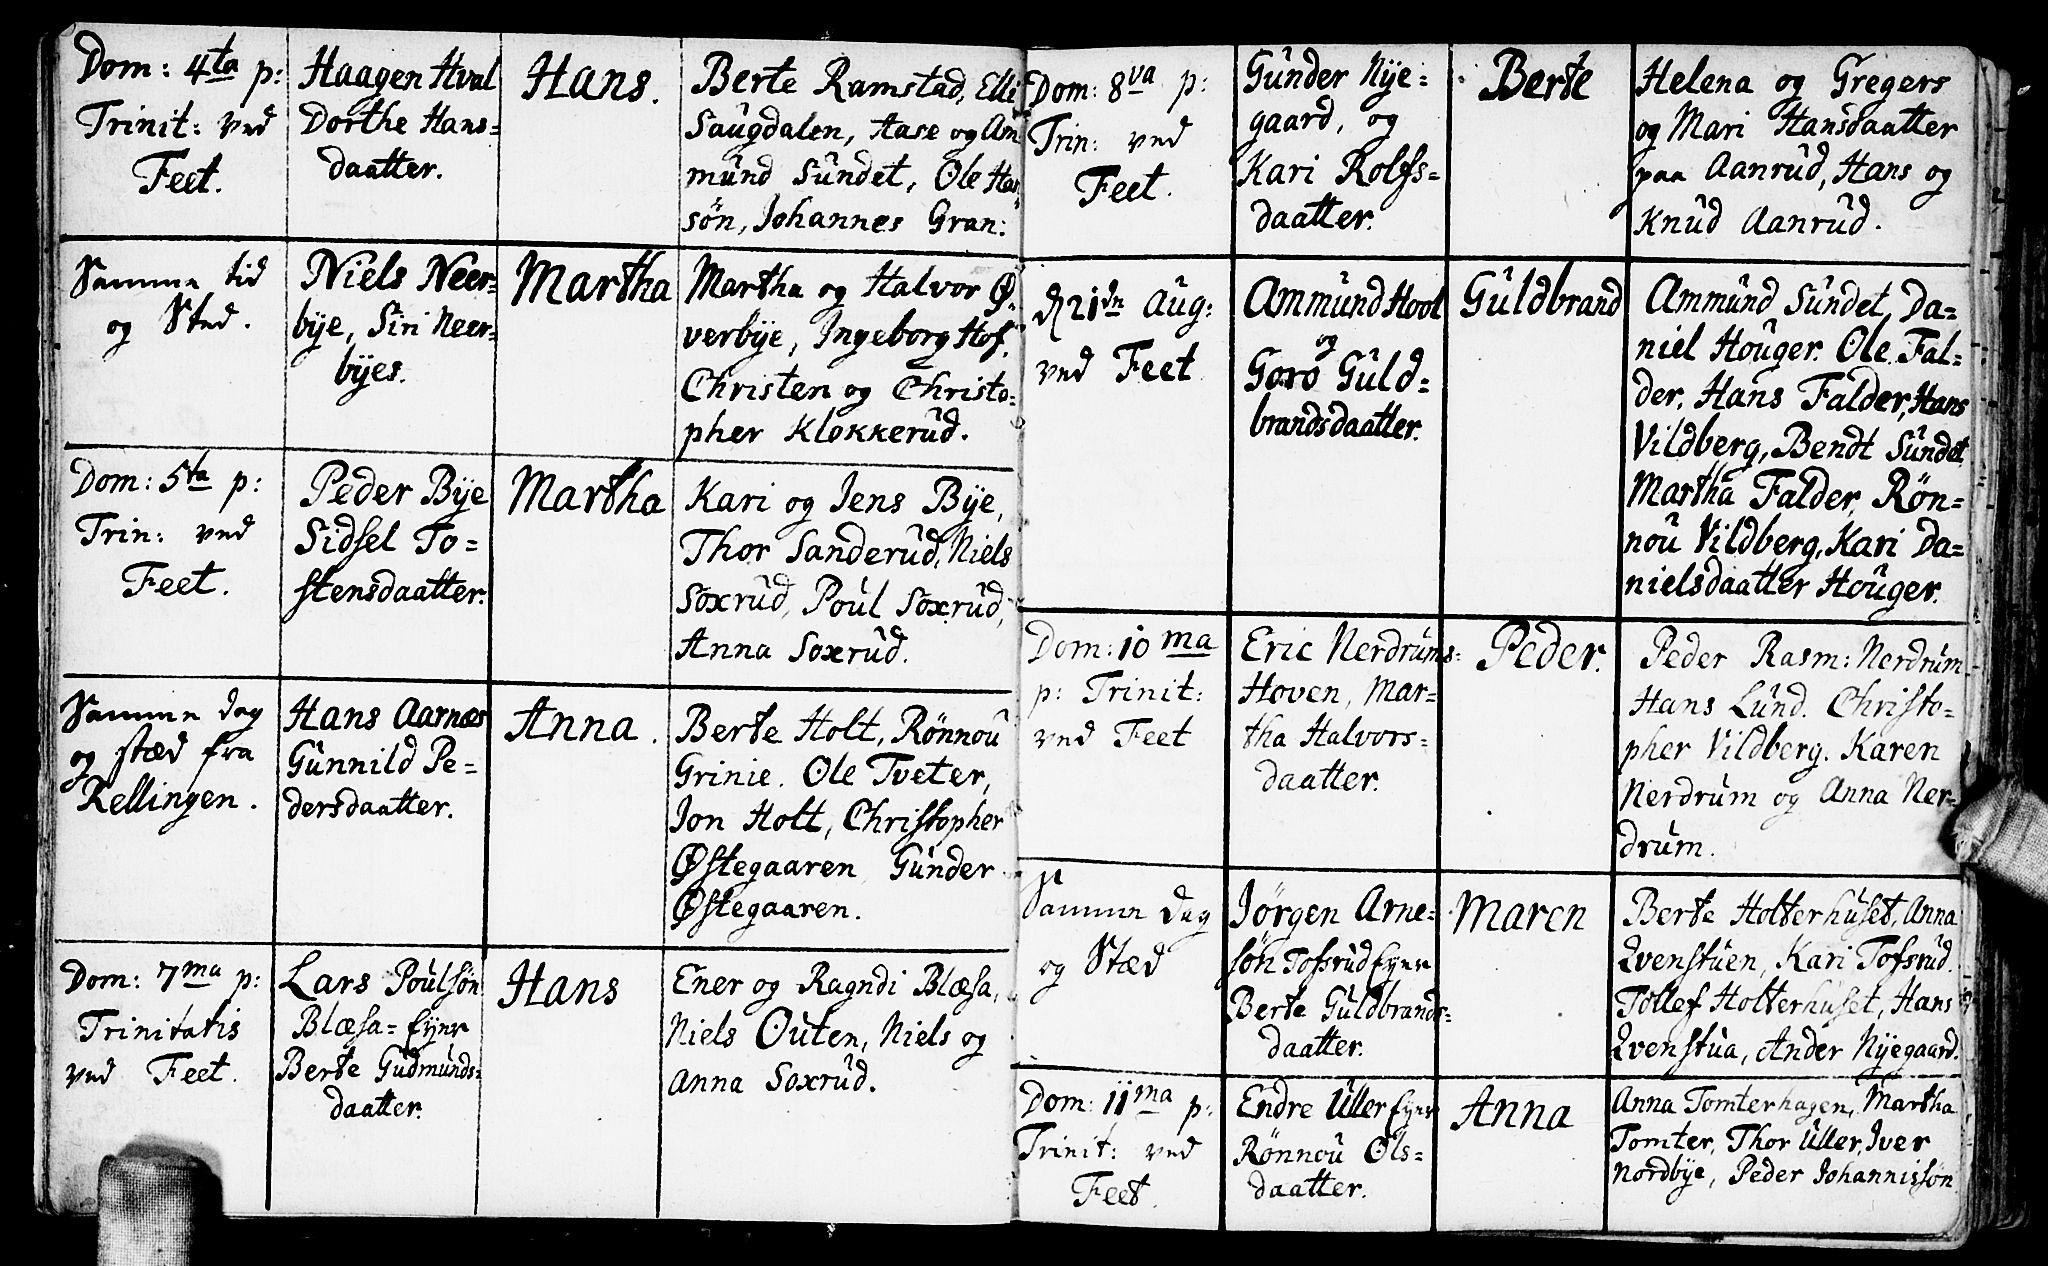 Dom: 4ta p:
Trinit: ved
Feet.
Haagen Hval
Dorthe Hans=
daatter.
Hans.
Berte Ramstad, Elli
Saugdalen, Aase og Am
mund Sundet, Ole Han
sön, Johannes Gran:
Samme tid
og Sted.
Niels Neer=
bÿe, Siri Neer=
bÿes.
Martha
Martha og Halvor Ø=
verbÿe, Ingeborg Hof,
Christen og Christo=
pher Klokkerud.
Dom: 5ta p:
Trin: ved
Feet.
Peder Bÿe
Sidsel To=
stensdaatter.
Martha
Kari og Jens Bÿe,
Thor Sanderud, Niels
Soxrud, Poul Soxrud,
Anna Soxrud.
Samme dag
og stæd fra
Rellingen.
Hans Aarnæs
Gunnild Pe=
dersdaatter.
Anna.
Berte Holt, Rönnou
Grinie. Ole Tveter,
Jon Holt, Christopher
Østegaaren Gunder
Østegaaren.
Dom: 7ma p:
Trinitatis
ved Feet.
Lars Poulsön
Blæsa= Eyer
Berte Gudmunds=
daatter.
Hans
Ener og Ragndi Blæsa,
Niels Outen, Niels og
Anna Soxrud.
Dom: 8va p:
Trin: ved
Feet.
Gunder Nÿe=
gaard, og
Kari Rolfs=
daatter.
Berte
Helena og Gregers
og Mari Hansdaatter
paa Aanrud, Hans og
Knud Aanrud.
d 21de Aug:
ved Feet
Ammund Hool
og
Goro Guld=
brandsdaatter.
Guldbrand
Ammund Sundet, Da=
niel Houger. Ole Fal=
der, Hans Falder, Hans
Vildberg, Bendt Sundet
Martha Falder, Rön=
nou Vildberg, Kari Da=
nielsdaatter Houger.
Dom: 10 ma
p: Trinit:
ved Feet
Eric Nerdrums=
Hoven, Mar=
tha Halvors=
daatter.
Peder.
Peder Rasm: Nerdrum
Hans Lund. Christo=
pher Vildberg. Karen
Nerdrum og Anna Ner=
drum.
Samme Dag
og Stæd
Jörgen Arne=
sön Tofsrud Eyer
Berte Guldbrands=
daatter.
Maren
Berte Holterhuset, Anna
Qvenstuen, Kari Tofsrud.
Tollef Holterhuset, Hans
Qvenstua, Ander Nÿegaard.
Dom: 11ma p:
Trinit: ved
Feet.
Endre Uller Eyer
Rönnou Ols=
daatter.
Anna
Anna Tomterhagen, Martha
Tomter, Thor Uller, Iver
Nordbÿe, Peder Johannissön